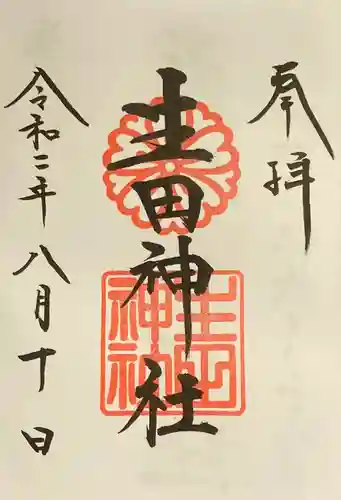 奉拝
生田神社
生田神社
令和二年八月十日